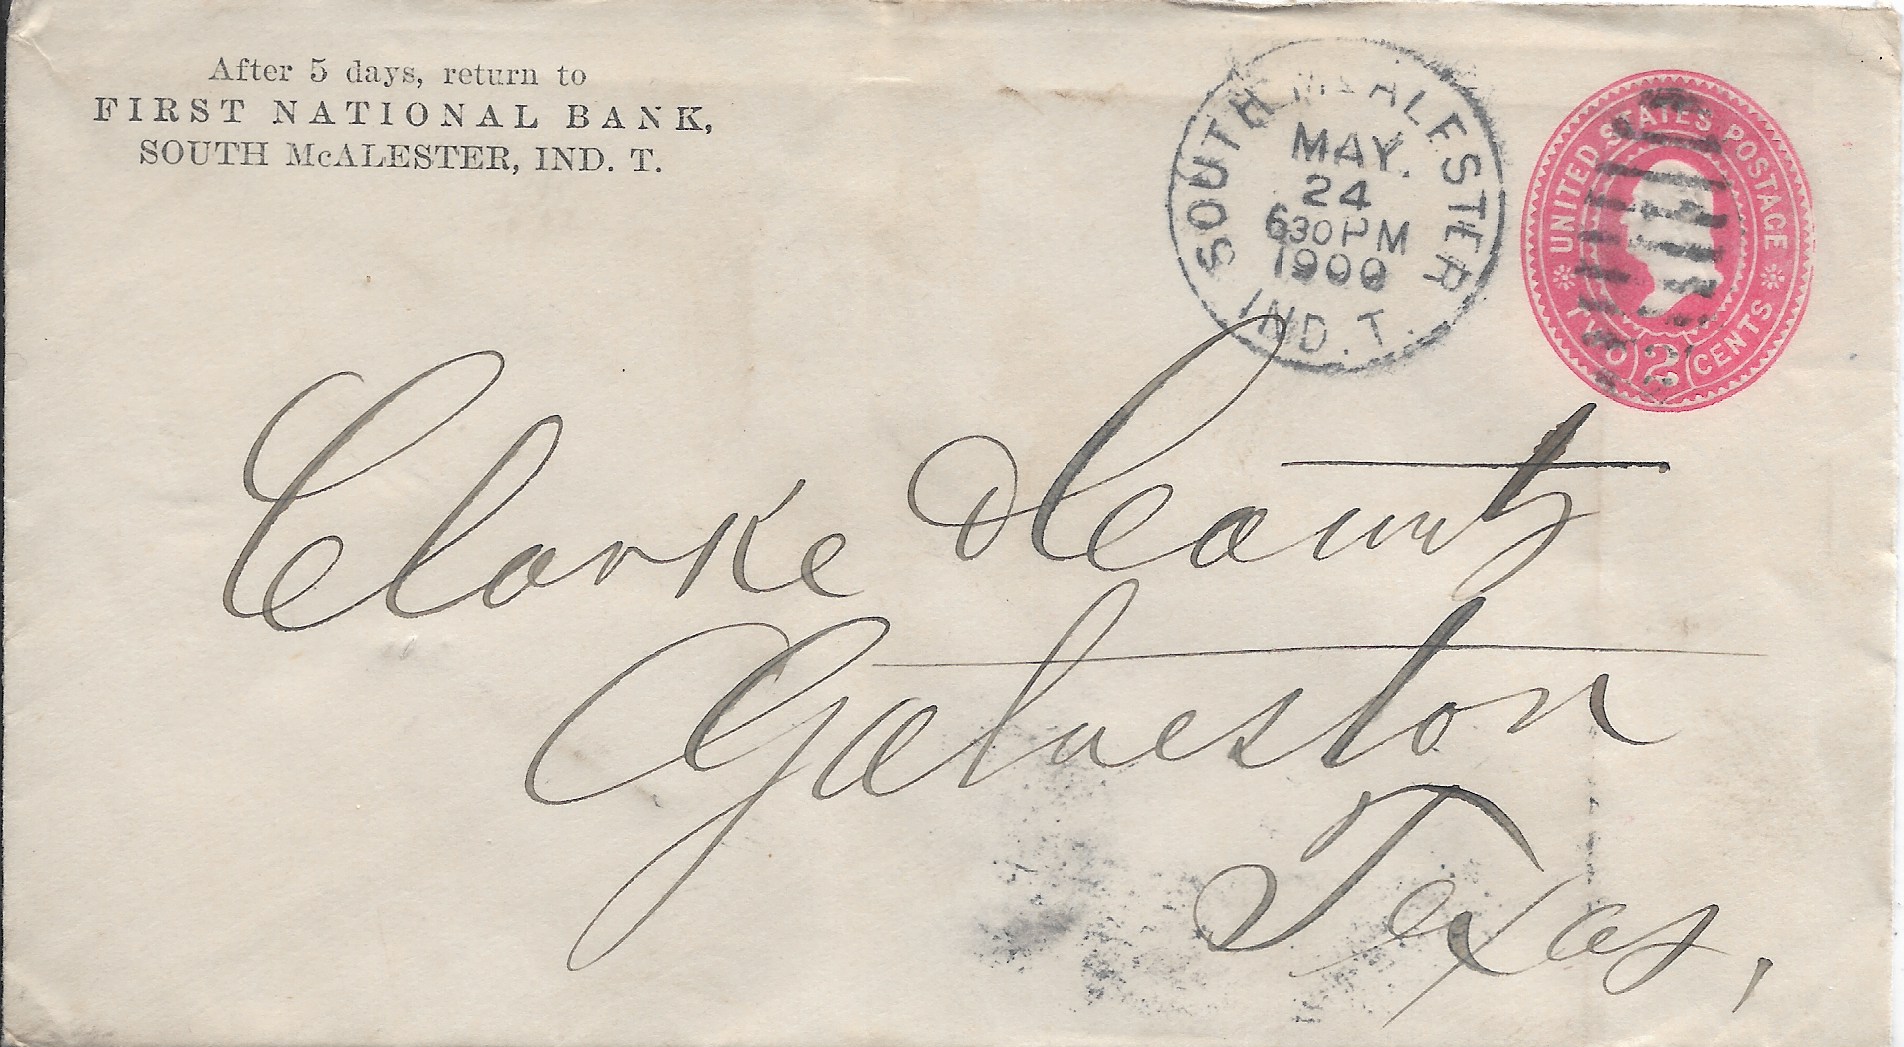 After 5 days, return to
FIRST NATIONAL BANK,
SOUTH McALESTER, IND. T.
SOUTH McALESTER
MAY.
24
630PM
1900
IND. T.
UNITED STATES POSTAGE
TWO 2 CENTS
Clarke & Courts
Galveston
Texas,